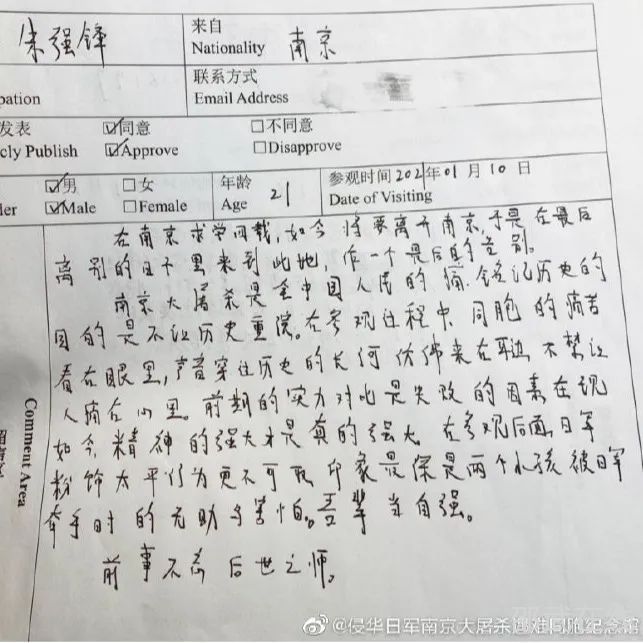 朱强锋
来自
Nationality 南京
联系方式
pation
Email Address
发表 ☑同意 □不同意
cly Publish ☑Approve □Disapprove
☑男 □女 年龄 21 参观时间2021年01月10日
der ☑Male □Female Age Date of Visiting
在南京求学四载,如今将要离开南京,于是在最后
离别的日子里来到此地,作一个最后的告别。
南京大屠杀是全中国人民的痛,铭记历史的
目的是不让历史重演。在参观过程中,同胞的痛苦
看在眼里,声音穿过历史的长河仿佛来在耳边,不禁让
人痛在心里。前期的实力对比是失败的因素在现
如今,精神的强大才是真的强大。在参观后面,日军
粉饰太平行为更不可取,印象最深是两个小孩被日军
牵手时的无助与害怕。吾辈当自强。
前事不忘 后世之师。
Comment Area
@侵华日军南京大屠杀遇难同胞纪念馆